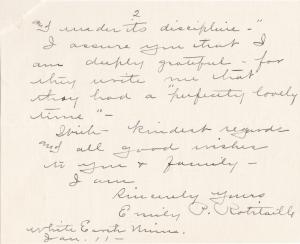 2
and under its discipline -"
I assure you that I
am deeply grateful - for
they write me that
they had a "perfectly lovely
time" -
With kindest regards
and all good wishes
to you & family -
I am
Sincerely yours
Emily P. Robitaille
White Earth Minn.
Jan. 11 -